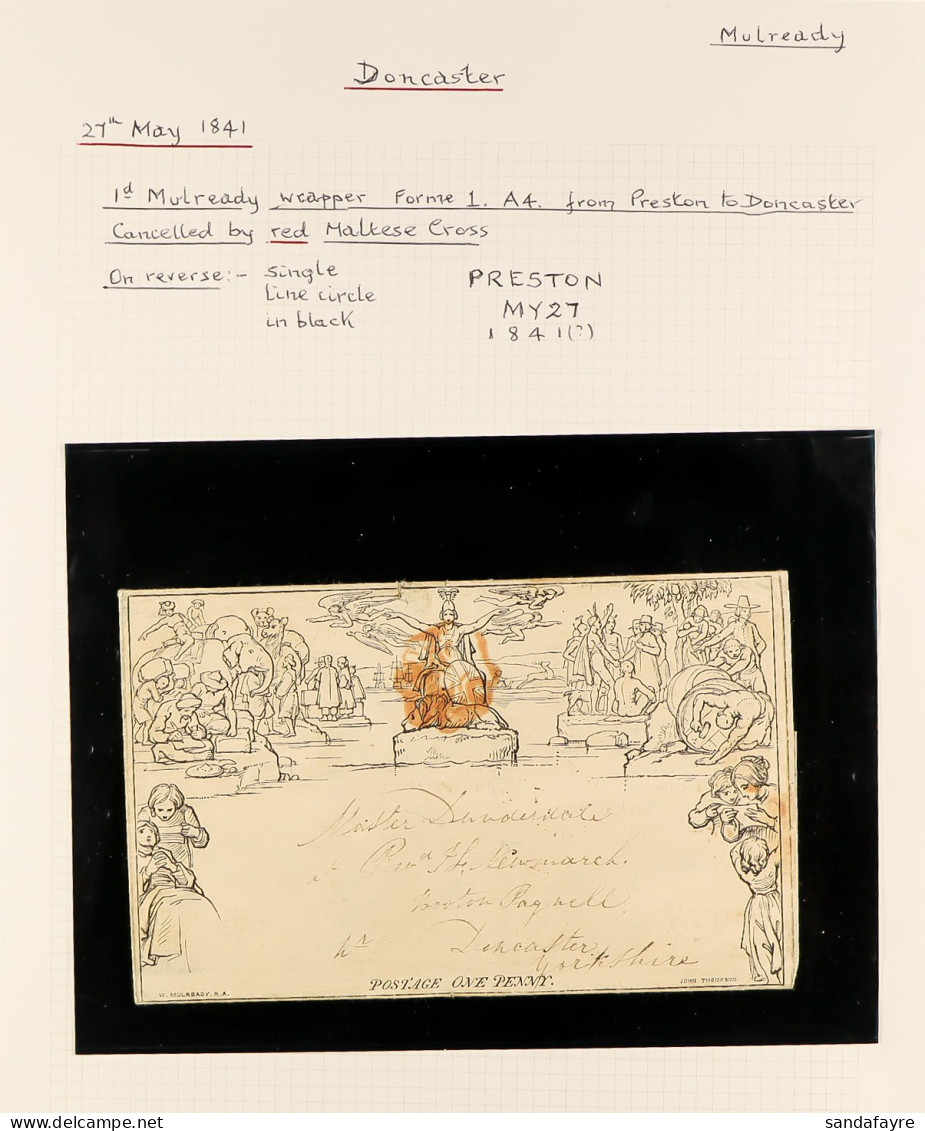 Mulready
Doncaster
27th May 1841
1d Mulready wrapper Forme 1. A4. from Preston to Doncaster
Cancelled by red Maltese Cross
On reverse:- single line circle in black
PRESTON
MY27
1841(?)
Master Dunderdale
at Revd H. Newmarch.
Hooton Pagnell
nr Doncaster
Yorkshire
POSTAGE ONE PENNY.
W. MULREADY, R.A.
JOHN THOMPSON
sandafayre